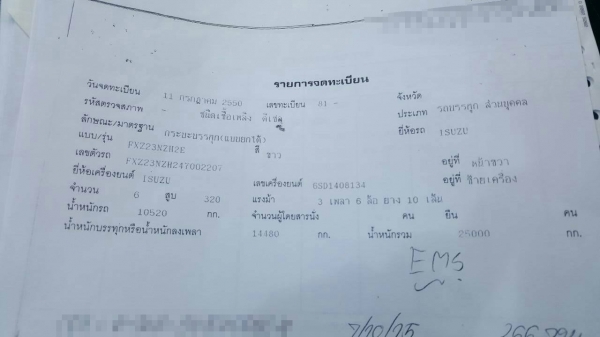 รายการจดทะเบียน
วันจดทะเบียน 11 กรกฎาคม 2550 เลขทะเบียน 81 - จังหวัด
รหัสตรวจสภาพ - ชนิดเชื้อเพลิง ดีเซล ประเภท รถบรรทุก ส่วนบุคคล
ลักษณะ/มาตรฐาน กระบะบรรทุก(แบบยกได้) ยี่ห้อรถ ISUZU
แบบ/รุ่น FXZ23NZH2E สี ขาว
เลขตัวรถ FXZ23NZH24T002207 อยู่ที่ หน้าขวา
ยี่ห้อเครื่องยนต์ ISUZU เลขเครื่องยนต์ 6SD1408134 อยู่ที่ ซ้ายเครื่อง
จำนวน 6 สูบ 320 แรงม้า 3 เพลา 6 ล้อ ยาง 10 เส้น
น้ำหนักรถ 10520 กก. จำนวนผู้โดยสารนั่ง คน ยืน คน
น้ำหนักบรรทุกหรือน้ำหนักลงเพลา 14480 กก. น้ำหนักรวม 25000 กก.
EMS